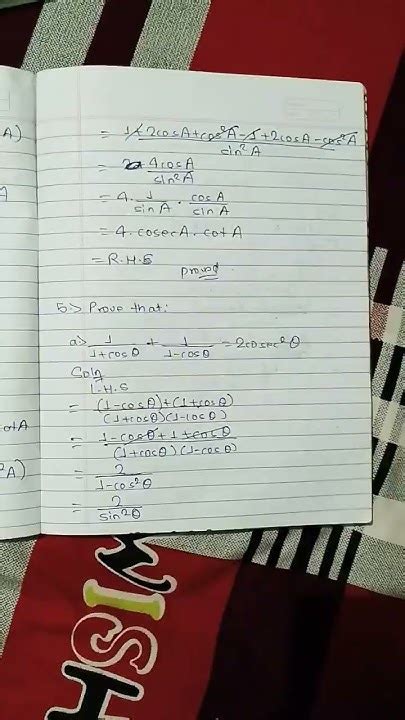 A)
= 1+2cosA+cos²A-1+2cosA-cos²A / sin²A
= 4cosA / sin²A
= 4. 1/sinA . cosA/sinA
= 4.cosecA.cotA
= R.H.S
proved
5> Prove that:
a> 1/1+cosθ + 1/1-cosθ = 2cosec²θ
Soln
L.H.S
= (1-cosθ)+(1+cosθ) / (1+cosθ)(1-cosθ)
= 1-cosθ+1+cosθ / (1+cosθ)(1-cosθ)
= 2 / 1-cos²θ
= 2 / sin²θ
cotA
²A)
WISH